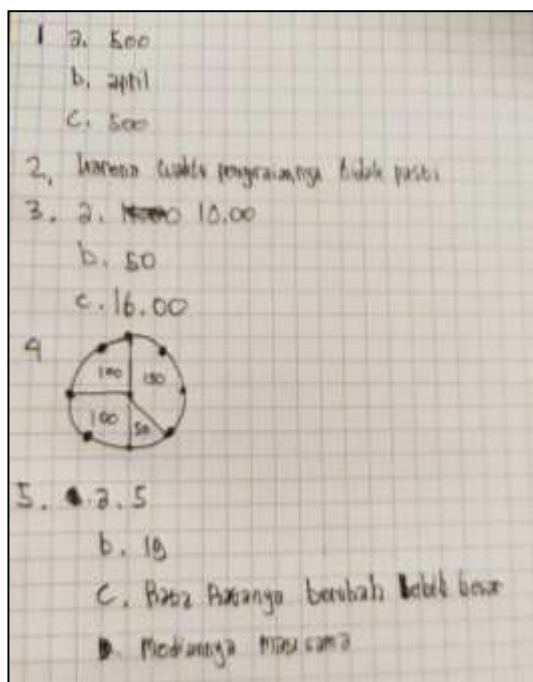 1 a. 500
b. april
c. 500
2. karena waktu tidak pasti
3. a. 10.00
b. 50
c. 16.00
4
100 150
100 50
5. a. 5
b. 18
c. Rata Ratanya berubah lebih besar
D. Mediannya sama